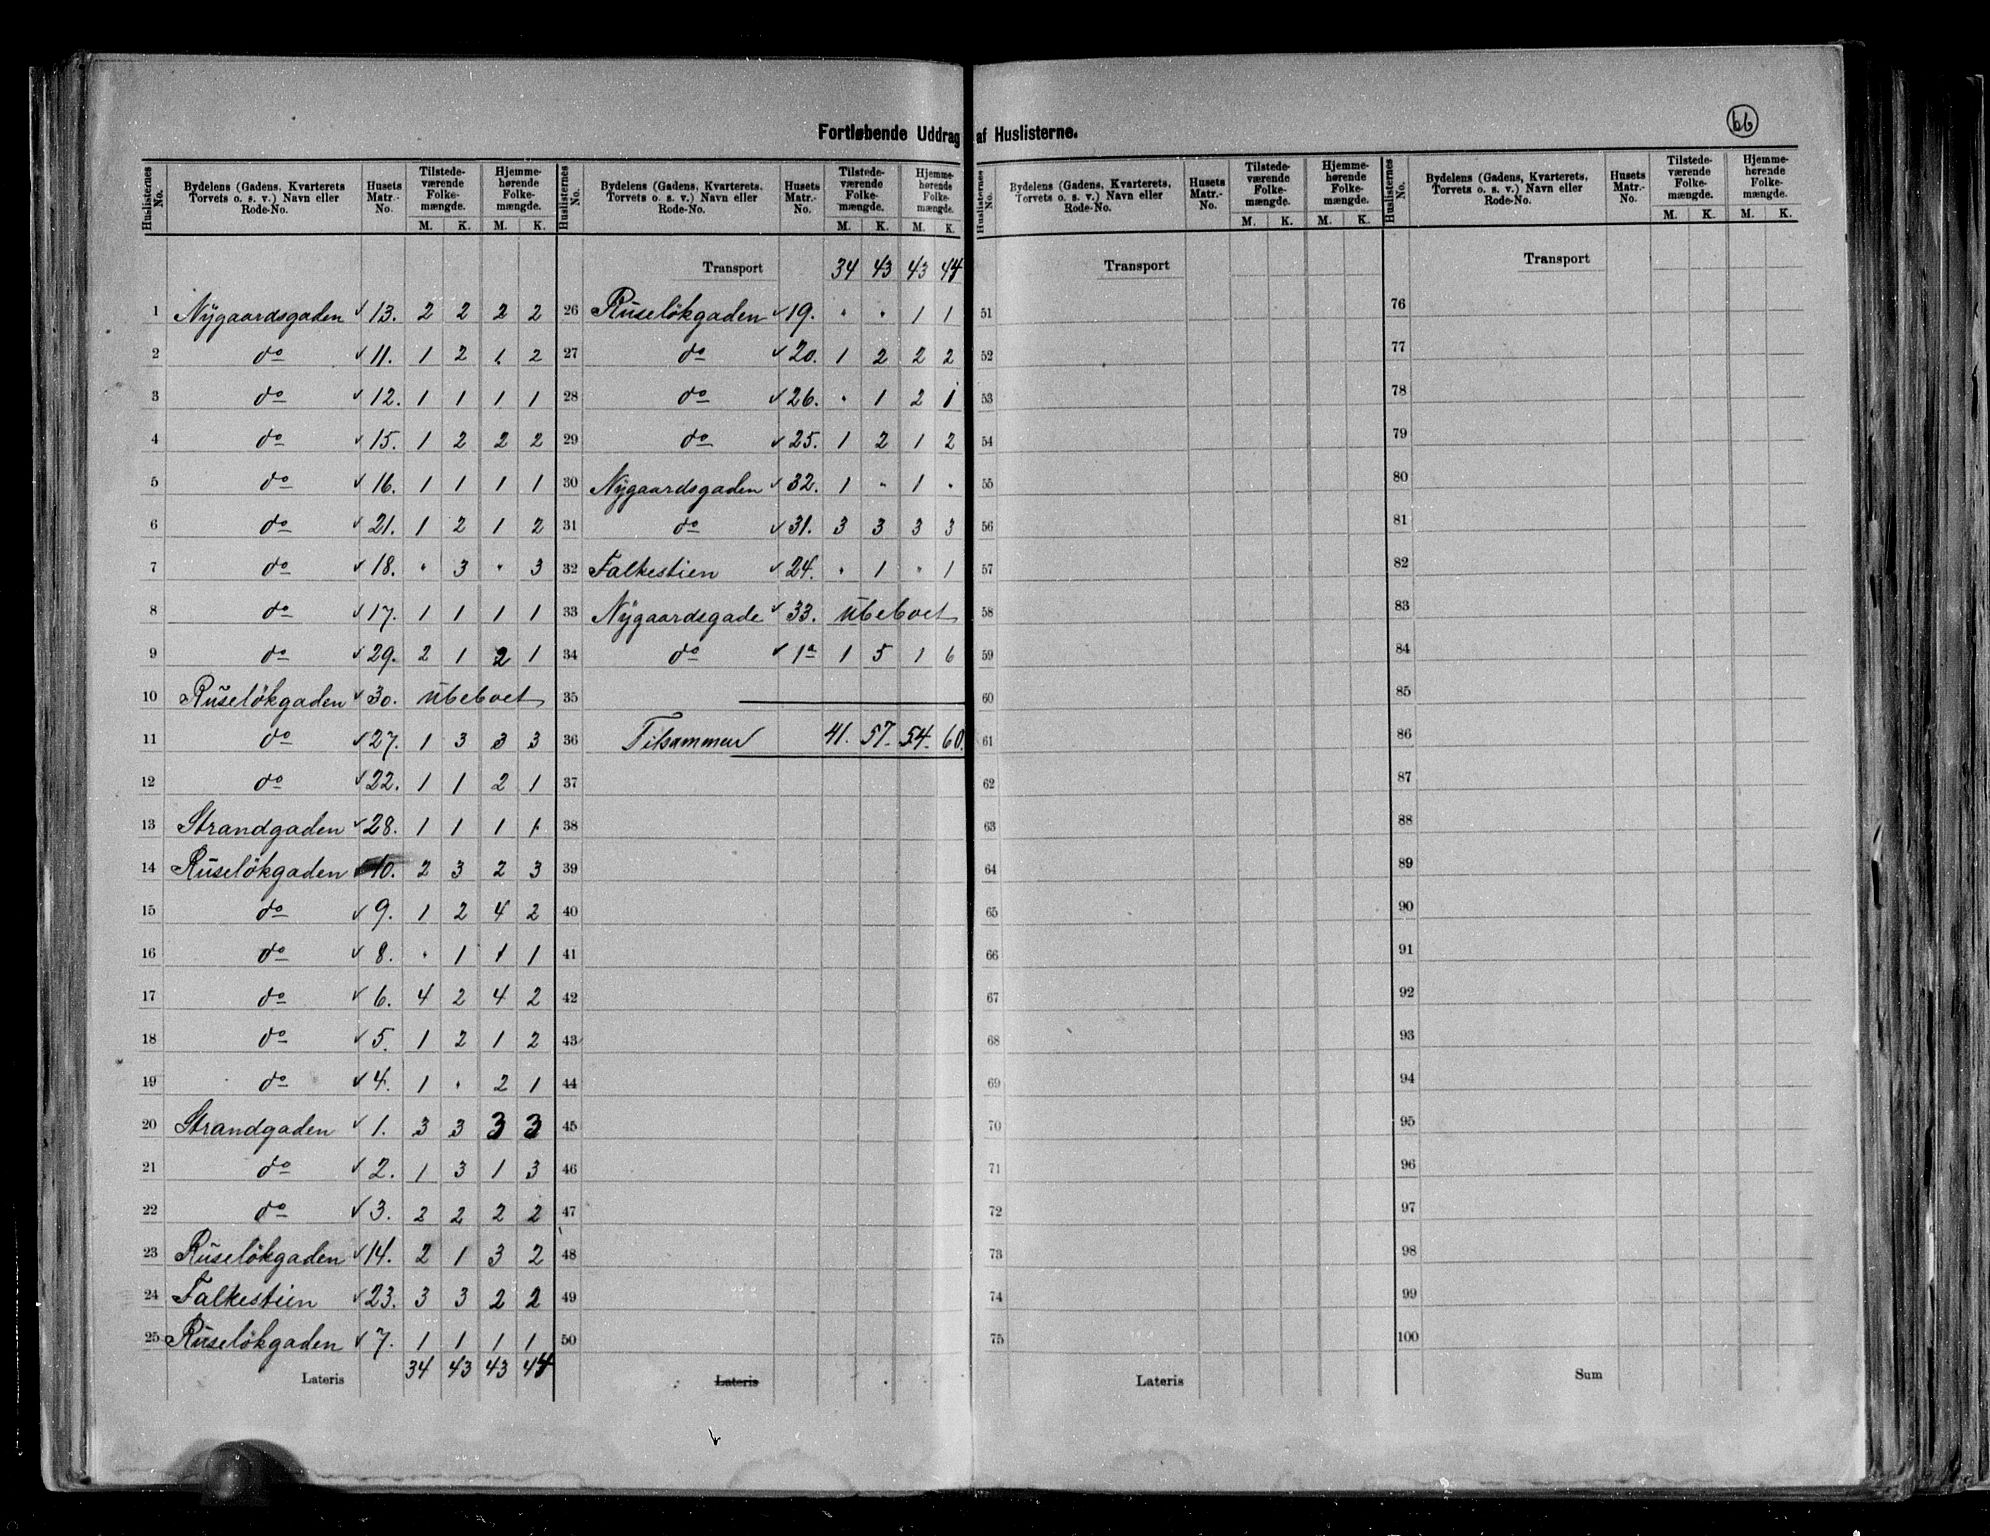 Fortløbende Uddrag af Huslisterne.
66
Huslisternes No. Bydelens (Gadens, Kvarterets Torvets o. s. v.) Navn eller Rode-No. Husets Matr.-No. Tilstede-værende Folke-mængde. M. K. Hjemme-hørende Folke-mængde. M. K.
1 Nygaardsgaden 13. 2 2 2 2
2 do 11. 1 2 1 2
3 do 12. 1 1 1 1
4 do 15. 1 2 2 2
5 do 16. 1 1 1 1
6 do 21. 1 2 1 2
7 do 18. " 3 " 3
8 do 17. 1 1 1 1
9 do 29. 2 1 2 1
10 Ruseløkgaden 30. ubeboet
11 do 27. 1 3 3 3
12 do 22. 1 1 2 1
13 Strandgaden 28. 1 1 1 1
14 Ruseløkgaden 10. 2 3 2 3
15 do 9. 1 2 4 2
16 do 8. " 1 1 1
17 do 6. 4 2 4 2
18 do 5. 1 2 1 2
19 do 4. 1 " 2 1
20 Strandgaden 1. 3 3 3 3
21 do 2. 1 3 1 3
22 do 3. 2 2 2 2
23 Ruseløkgaden 14. 2 1 3 2
24 Falkestien 23. 3 3 2 2
25 Ruseløkgaden 7. 1 1 1 1
Lateris 34 43 43 44
Huslisternes No. Bydelens (Gadens, Kvarterets, Torvets o. s. v.) Navn eller Rode-No. Husets Matr.-No. Tilstede-værende Folke-mængde. M. K. Hjemme-hørende Folke-mængde. M. K.
Transport 34 43 43 44
26 Ruseløkgaden 19. " " 1 1
27 do 20. 1 2 2 2
28 do 26. " 1 2 1
29 do 25. 1 2 1 2
30 Nygaardsgaden 32. 1 " 1 "
31 do 31. 3 3 3 3
32 Falkestien 24. " 1 " 1
33 Nygaardsgade 33. ubeboet
34 do 1a 1 5 1 6
35
36 Tilsammen 41. 57. 54. 60.
37
38
39
40
41
42
43
44
45
46
47
48
49
50
Lateris
Huslisternes No. Bydelens (Gadens, Kvarterets, Torvets o. s. v.) Navn eller Rode-No. Husets Matr.-No. Tilstede-værende Folke-mængde. M. K. Hjemme-hørende Folke-mængde. M. K.
Transport
51
52
53
54
55
56
57
58
59
60
61
62
63
64
65
66
67
68
69
70
71
72
73
74
75
Lateris
Huslisternes No. Bydelens (Gadens, Kvarterets, Torvets o. s. v.) Navn eller Rode-No. Husets Matr.-No. Tilstede-værende Folke-mængde. M. K. Hjemme-hørende Folke-mængde. M. K.
Transport
76
77
78
79
80
81
82
83
84
85
86
87
88
89
90
91
92
93
94
95
96
97
98
99
100
Sum